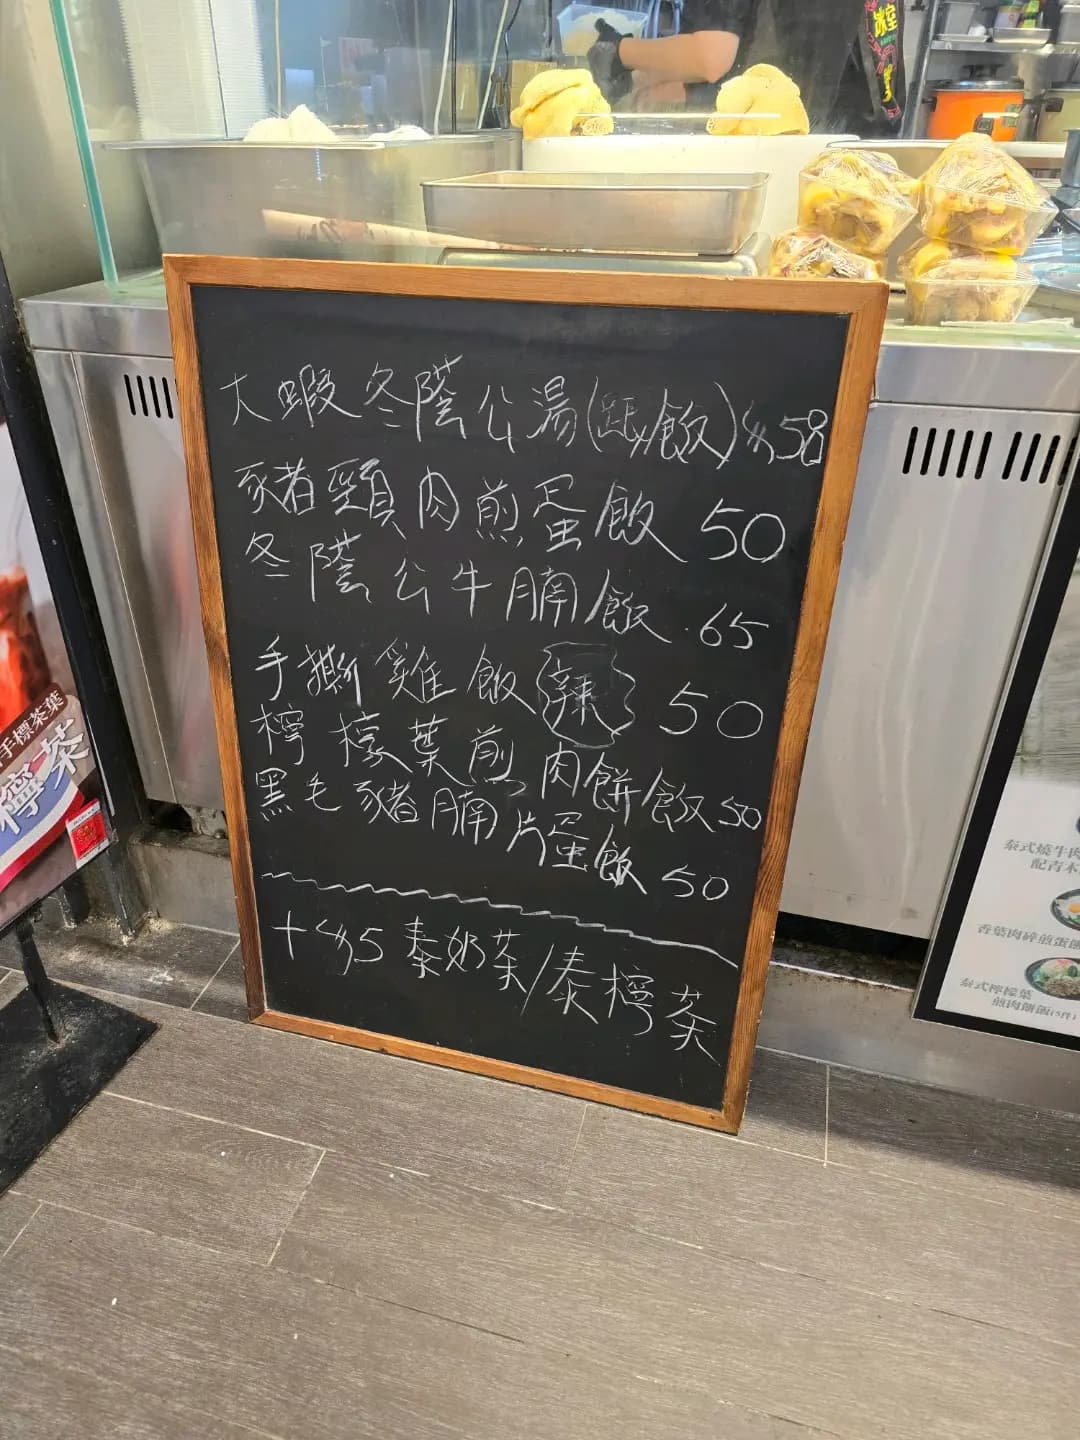 冰室
大蝦冬蔭公湯(跟飯)$58
豬頸肉煎蛋飯 50
冬蔭公牛腩飯 65
手撕雞飯 辣 50
檸檬葉煎肉餅飯 50
黑毛豬腩片蛋飯 50
+$5 泰奶茶/泰檸茶
手標茶葉
檸茶
泰式燒牛肉
配青木
香葉肉碎煎蛋飯
泰式檸檬葉
煎肉餅飯(5件)